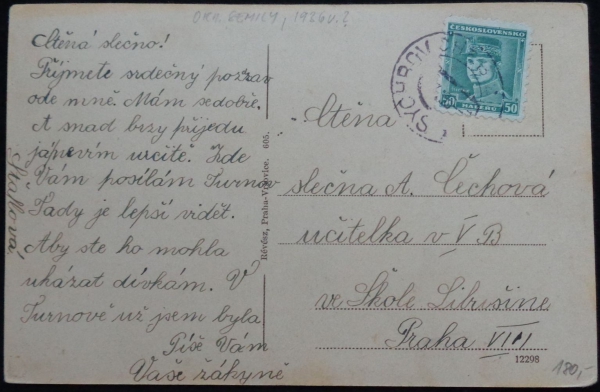 OKR. SEMILY, 1936 V.?
Ctěná slečno!
Přijmete srdečný pozdrav
ode mně. Mám se dobře.
A snad brzy přijedu
já nevím určitě. Zde
Vám posílám Turnov
Tady je lepší vidět.
Aby ste ho mohla
ukázat dívkám. V
Turnově už jsem byla
Píše Vám
Vaše žákyně
Révész, Praha-Vršovice. 605.
ČESKOSLOVENSKO
50 HALÉŘŮ 50
SYCHROV
Ctěna
slečna A. Čechová
učitelka v V B
ve Škole Libušině
Praha VIII
12298
180,-